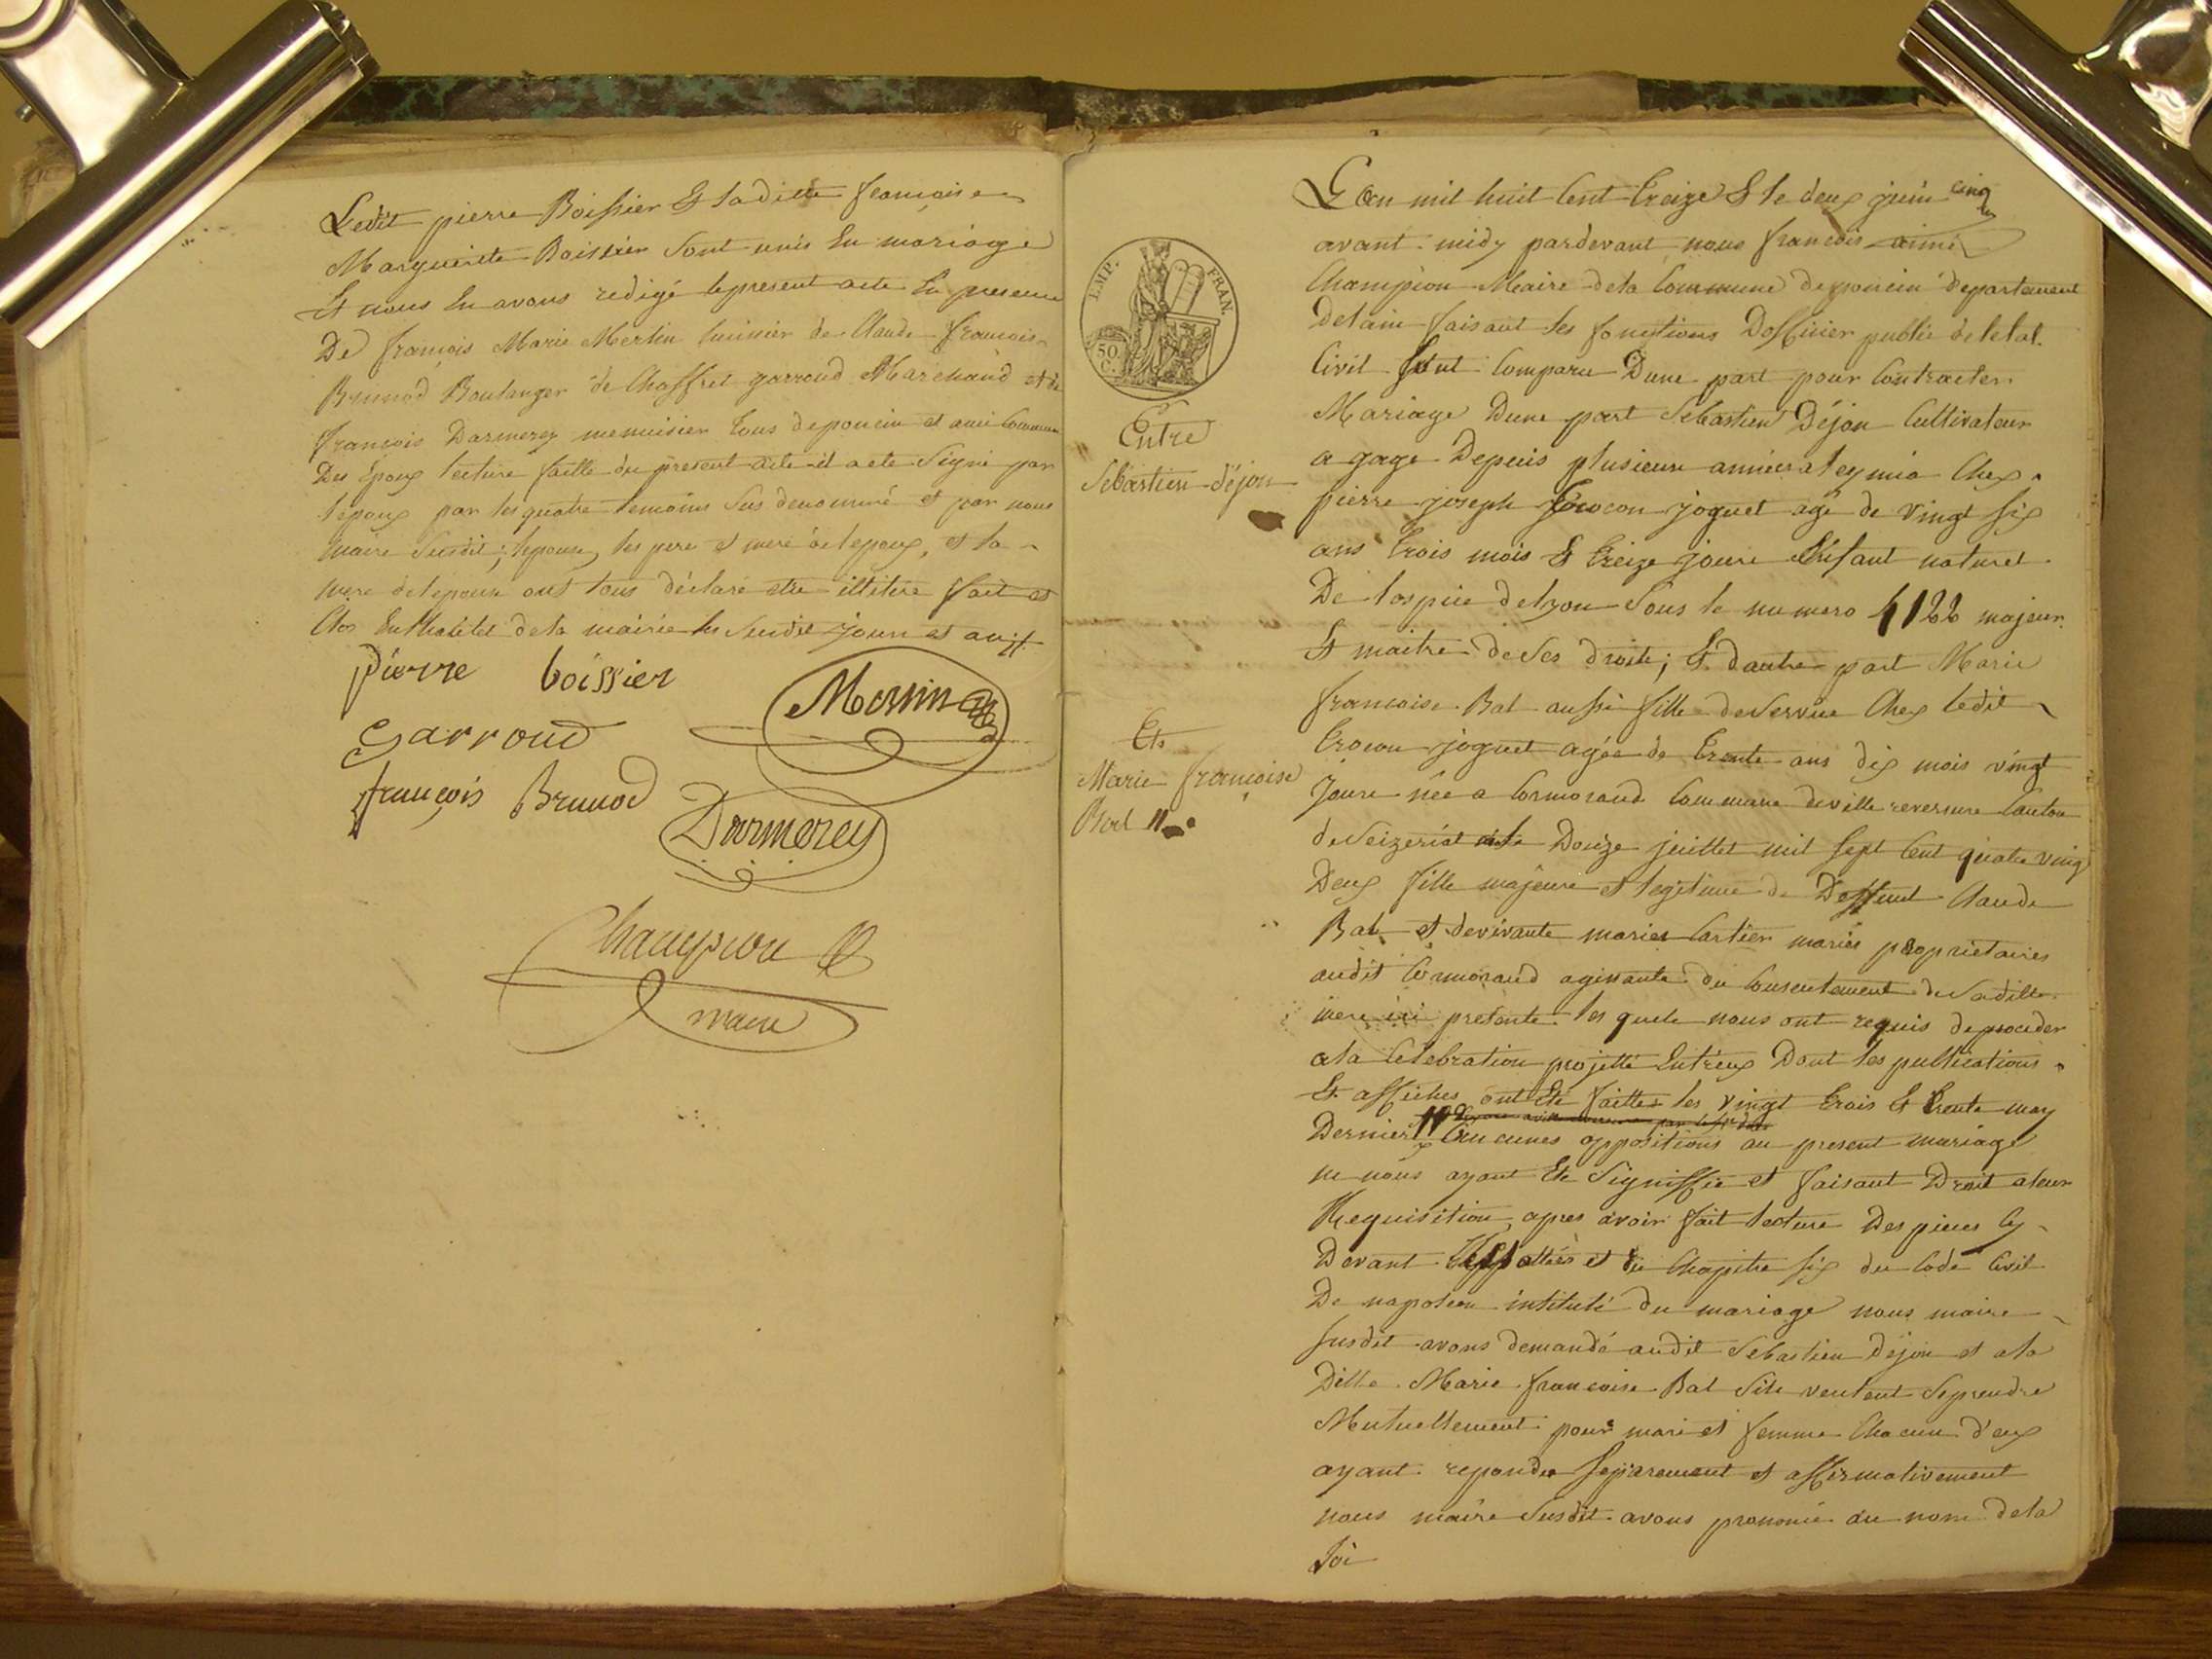 Ledit pierre Boissier & ladite francoise
Marguerite Boissier sont unis En mariage
Et nous En avons redigé le present acte En presence
De françois Marie Merlin huissier de Claude francois
Brunod Boulanger de Chaffret garroud Marchand et de
francois Darmerey menuisier tous deponcin et ami Commun
Des Epoux lecture faitte du present acte il a ete Signé par
lepoux par les quatre temoins sus denommé et par nous
maire Susdit; lepouse, les pere et mere de lepoux, et la
mere de lepouse ont tous déclaré etre illitéré fait et
Clos En lhotel de la mairie les susdit jour et an
pierre boissier
Garroud
françois Brunod
Darmerey
Champion
maire
EMP. FRAN.
50. C.
Entre
Sebastien déjon
Et
Marie françoise
Bal
Lan mil huit Cent treize & le deux juin cinq
avant midy pardevant nous francois aimé
Champion Maire de la Commune deponcin departement
Delain faisant les fonctions Dofficier public de letat
Civil Sont Comparu Dune part pour Contracter
Mariage Dune part Sebastien Déjon Cultivateur
a gage Depuis plusieurs années a leymia Chez
pierre joseph joguet agé de vingt six
ans trois mois & treize jours Enfant naturel
De lospice delyon Sous le numero 4122 majeur
Et maitre de Ses droits; Et dautre part Marie
francoise Bal aussi fille deservice Chez ledit
joguet agée de trente ans dix mois vingt
jours née a Cormorand Commune deville reversure Canton
de Seizeriat Douze juillet mil sept Cent quatre vingt
Deux fille majeure et legitime de Deffunt Claude
Bal et devivante marie Cartier mariés proprietaires
audit Cormorand agissante du Consentement de Saditte
mere ici presente. les quels nous ont requis deproceder
ala Celebration projetté Entreux Dont les publications
Et affiches ont Eté faittes les vingt trois & trente may
Dernier Aucunes oppositions au present mariage
ne nous ayant Eté Signiffié et faisant Droit aleur
Requisition, apres avoir fait lecture Des pieces Cy
Devant et du Chapitre six du Code Civil
De napoleon intitulé du mariage nous maire
susdit avons demandé audit Sebastien déjon et ala
Ditte Marie francoise Bal Sils veulent Seprendre
Mutuellement pour mari et femme Chacun d'eux
ayant repondu separement et affirmativement
nous maire Susdit avons prononcé au nom dela
Loi